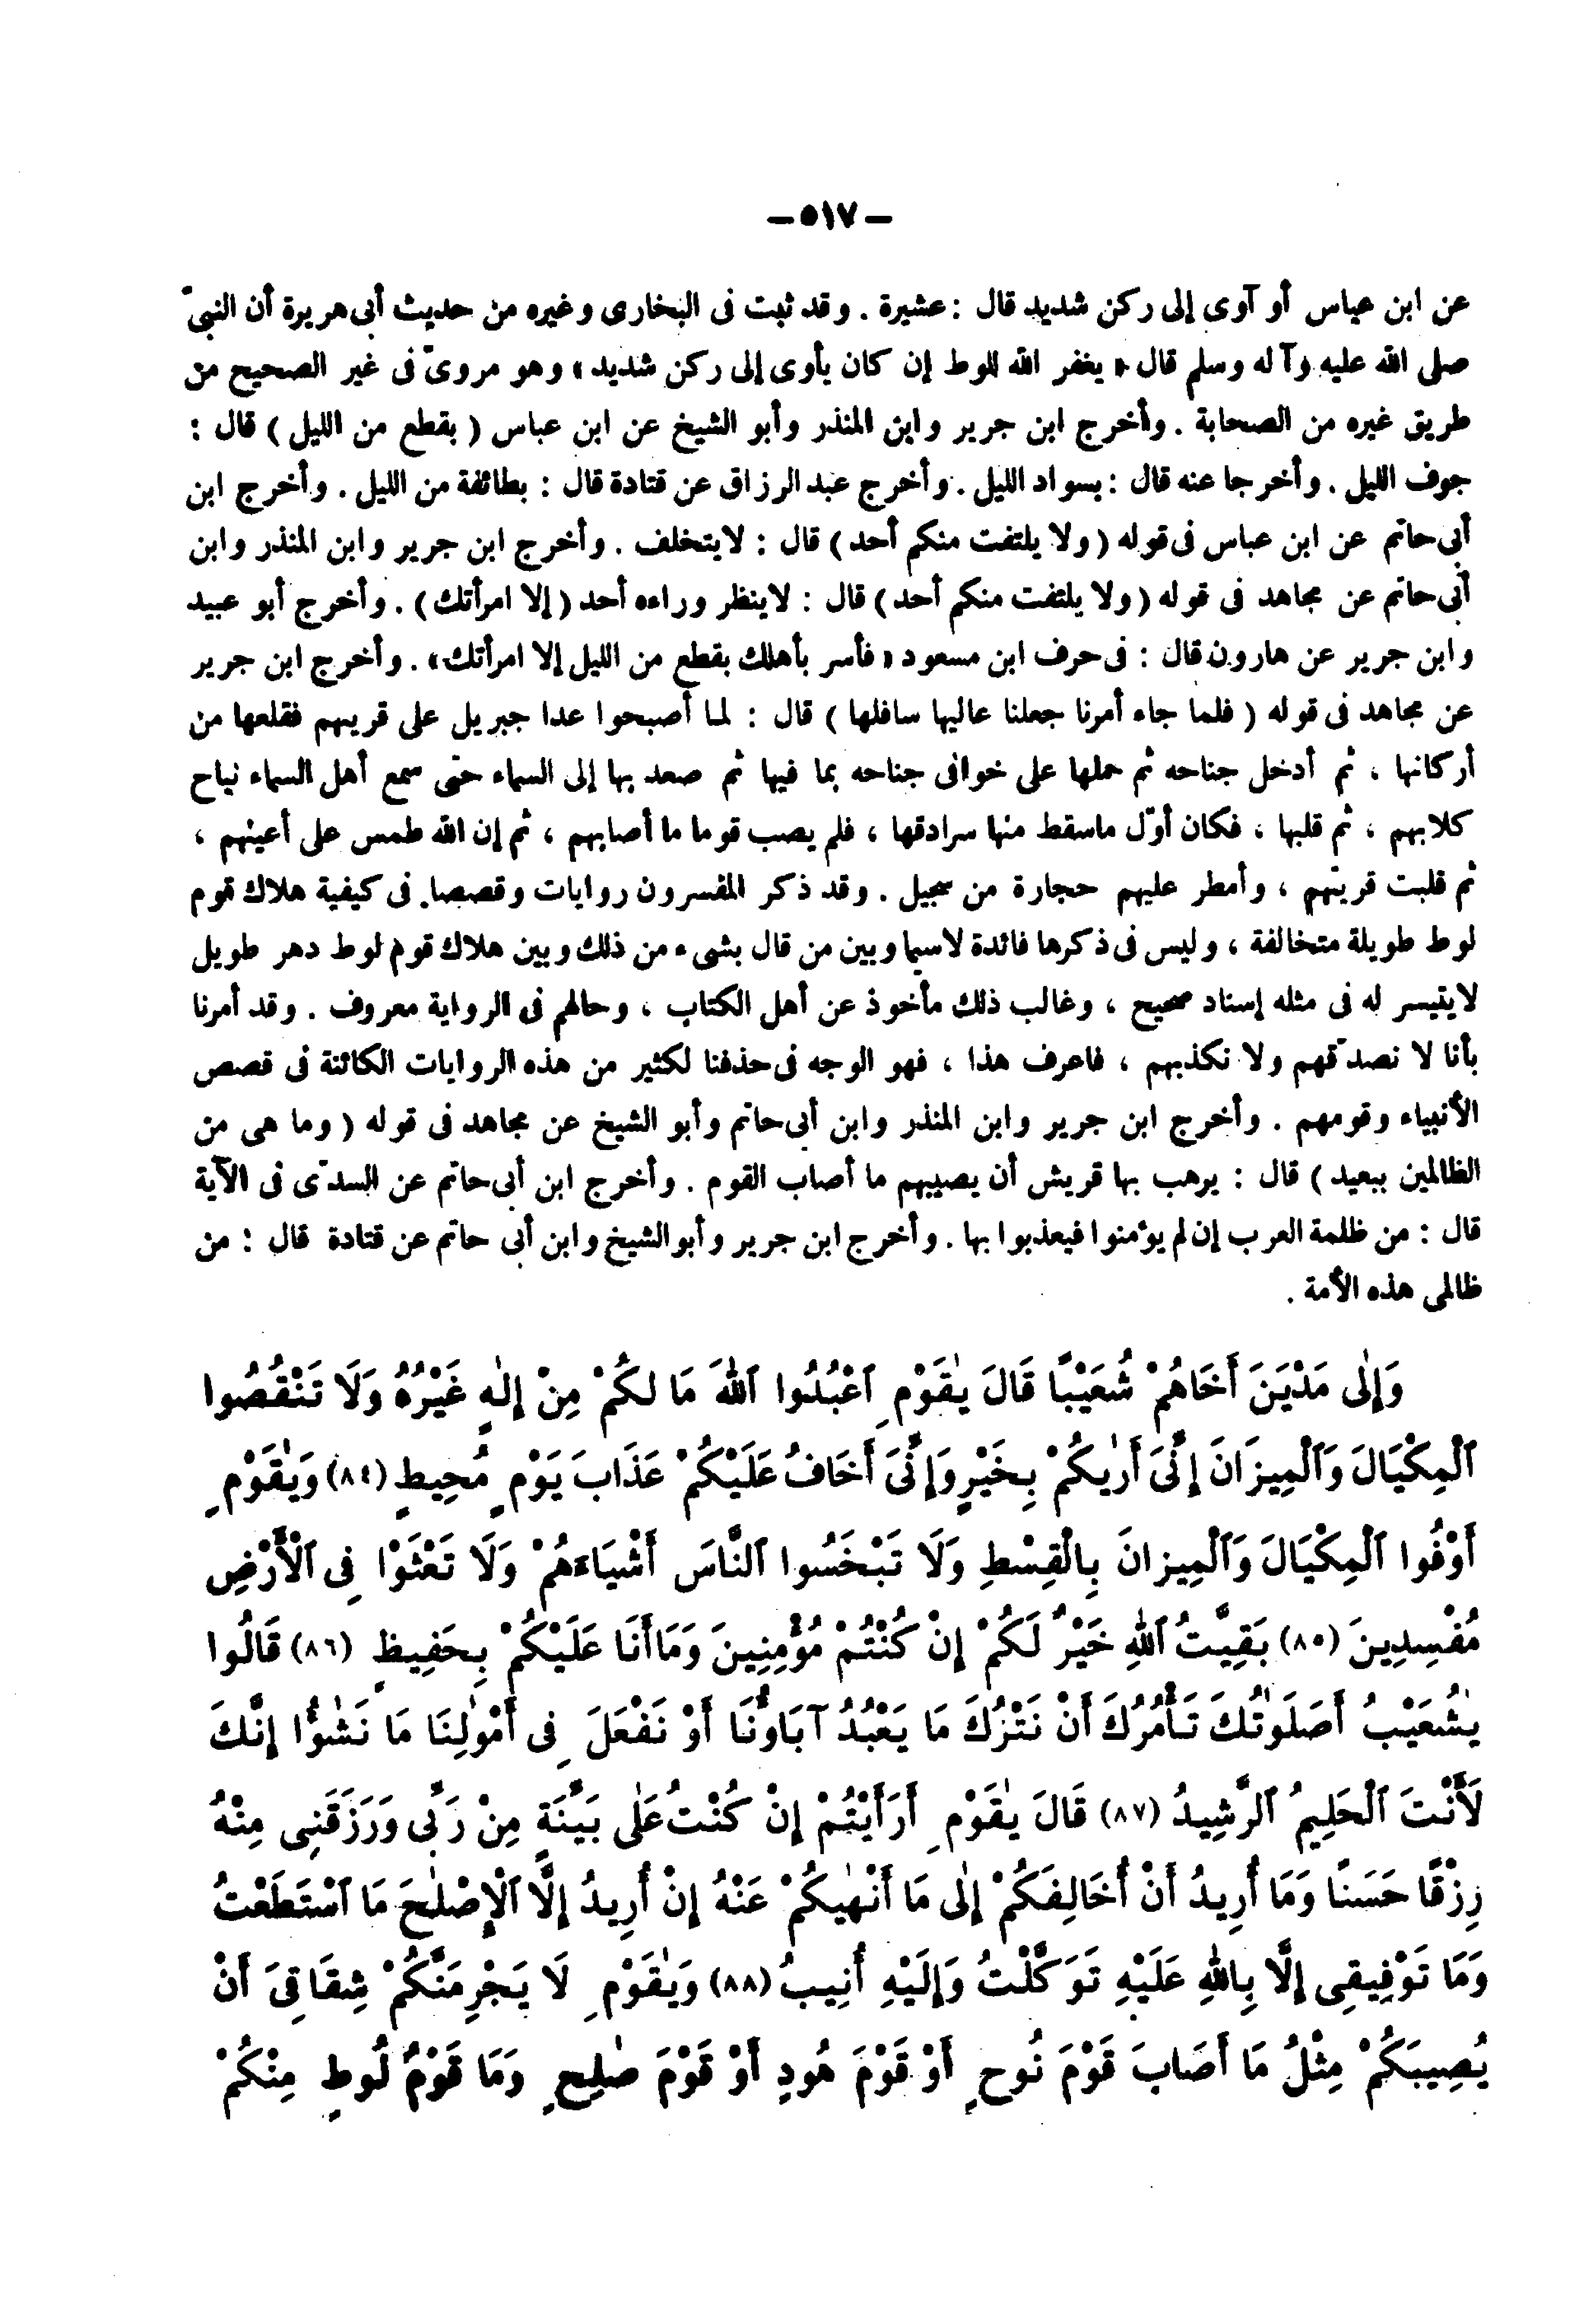 — ٥١٧ —
عن ابن عباس أو آوى إلى ركن شديد قال : عشيرة . وقد ثبت فى البخارى وغيره من حديث أبى هريرة أن النبىّ
صلى الله عليه وآله وسلم قال « يغفر الله للوط إن كان يأوى إلى ركن شديد » وهو مروىّ فى غير الصحيح من
طريق غيره من الصحابة . وأخرج ابن جرير وابن المنذر وأبو الشيخ عن ابن عباس ( بقطع من الليل ) قال :
جوف الليل . وأخرجا عنه قال : بسواد الليل . وأخرج عبد الرزاق عن قتادة قال : بطائفة من الليل . وأخرج ابن
أبى حاتم عن ابن عباس فى قوله ( ولا يلتفت منكم أحد ) قال : لا يتخلف . وأخرج ابن جرير وابن المنذر وابن
أبى حاتم عن مجاهد فى قوله ( ولا يلتفت منكم أحد ) قال : لا ينظر وراءه أحد ( إلا امرأتك ) . وأخرج أبو عبيد
وابن جرير عن هارون قال : فى حرف ابن مسعود « فأسر بأهلك بقطع من الليل إلا امرأتك » . وأخرج ابن جرير
عن مجاهد فى قوله ( فلما جاء أمرنا جعلنا عاليها سافلها ) قال : لما أصبحوا عدا جبريل على قريتهم فقلعها من
أركانها ، ثم أدخل جناحه ثم حملها على خوافى جناحه بما فيها ثم صعد بها إلى السماء حتى سمع أهل السماء نباح
كلابهم ، ثم قلبها ، فكان أوّل ما سقط منها سرادقها ، فلم يصب قوما ما أصابهم ، ثم إن الله طمس على أعينهم ،
ثم قلبت قريتهم ، وأمطر عليهم حجارة من سجيل . وقد ذكر المفسرون روايات وقصصا فى كيفية هلاك قوم
لوط طويلة متخالفة ، وليس فى ذكرها فائدة لاسيما وبين من قال بشىء من ذلك وبين هلاك قوم لوط دهر طويل
لا يتيسر له فى مثله إسناد صحيح ، وغالب ذلك مأخوذ عن أهل الكتاب ، وحالهم فى الرواية معروف . وقد أمرنا
بأنا لا نصدّقهم ولا نكذبهم ، فاعرف هذا ، فهو الوجه فى حذفنا لكثير من هذه الروايات الكائنة فى قصص
الأنبياء وقومهم . وأخرج ابن جرير وابن المنذر وابن أبى حاتم وأبو الشيخ عن مجاهد فى قوله ( وما هى من
الظالمين ببعيد ) قال : يرهب بها قريش أن يصيبهم ما أصاب القوم . وأخرج ابن أبى حاتم عن السدّى فى الآية
قال : من ظلمة العرب إن لم يؤمنوا فيعذبوا بها . وأخرج ابن جرير وأبو الشيخ وابن أبى حاتم عن قتادة قال : من
ظالمى هذه الأمة .
وَإِلٰى مَدْيَنَ أَخَاهُمْ شُعَيْبًا قَالَ يٰقَوْمِ ٱعْبُدُوا ٱللّٰهَ مَا لَكُمْ مِنْ إِلٰهٍ غَيْرُهُ وَلَا تَنْقُصُوا
ٱلْمِكْيَالَ وَٱلْمِيزَانَ إِنِّىَ أَرٰيكُمْ بِخَيْرٍ وَإِنِّىَ أَخَافُ عَلَيْكُمْ عَذَابَ يَوْمٍ مُحِيطٍ (٨٤) وَيٰقَوْمِ
أَوْفُوا ٱلْمِكْيَالَ وَٱلْمِيزانَ بِالْقِسْطِ وَلَا تَبْخَسُوا ٱلنَّاسَ أَشْيَاءَهُمْ وَلَا تَعْثَوْا فِى ٱلْأَرْضِ
مُفْسِدِينَ (٨٥) بَقِيَّتُ ٱللّٰهِ خَيْرٌ لَكُمْ إِنْ كُنْتُمْ مُؤْمِنِينَ وَمَا أَنَا عَلَيْكُمْ بِحَفِيظٍ (٨٦) قَالُوا
يٰشُعَيْبُ أَصَلَوٰتُكَ تَأْمُرُكَ أَنْ نَتْرُكَ مَا يَعْبُدُ آبَاؤُنَا أَوْ نَفْعَلَ فِى أَمْوٰلِنَا مَا نَشٰؤُا إِنَّكَ
لَأَنْتَ ٱلْحَلِيمُ ٱلرَّشِيدُ (٨٧) قَالَ يٰقَوْمِ أَرَأَيْتُمْ إِنْ كُنْتُ عَلٰى بَيِّنَةٍ مِنْ رَبِّى وَرَزَقَنِى مِنْهُ
رِزْقًا حَسَنًا وَمَا أُرِيدُ أَنْ أُخَالِفَكُمْ إِلٰى مَا أَنْهٰيكُمْ عَنْهُ إِنْ أُرِيدُ إِلَّا ٱلْإِصْلٰحَ مَا ٱسْتَطَعْتُ
وَمَا تَوْفِيقِى إِلَّا بِاللّٰهِ عَلَيْهِ تَوَكَّلْتُ وَإِلَيْهِ أُنِيبُ (٨٨) وَيٰقَوْمِ لَا يَجْرِمَنَّكُمْ شِقَاقِىَ أَنْ
يُصِيبَكُمْ مِثْلُ مَا أَصَابَ قَوْمَ نُوحٍ أَوْ قَوْمَ هُودٍ أَوْ قَوْمَ صٰلِحٍ وَمَا قَوْمُ لُوطٍ مِنْكُمْ